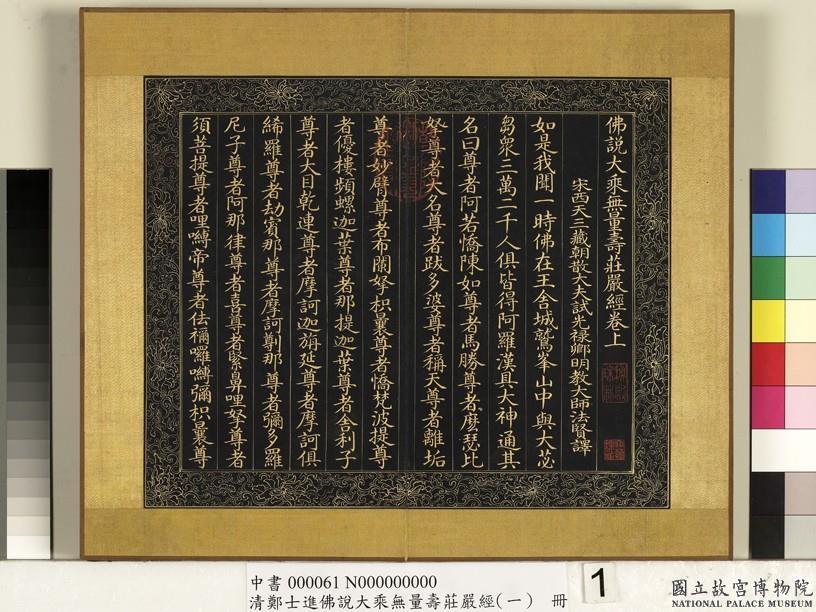 佛說大乘無量壽莊嚴經卷上
宋西天三藏朝散大夫試光祿卿明教大師法賢譯
如是我聞一時佛在王舍城鷲峯山中與大苾
芻眾三萬二千人俱皆得阿羅漢具大神通其
名曰尊者阿若憍陳如尊者馬勝尊者麼瑟比
拏尊者大名尊者跋多婆尊者稱天尊者離垢
尊者妙臂尊者布闌拏枳曩尊者憍梵波提尊
者優樓頻螺迦葉尊者那提迦葉尊者舍利子
尊者大目乾連尊者摩訶迦旃延尊者摩訶俱
絺羅尊者劫賓那尊者摩訶那尊者彌多羅
尼子尊者阿那律尊者喜尊者緊鼻哩拏尊者
須菩提尊者哩嚩帝尊者佉禰囉嚩彌枳曩尊
中書 000061 N000000000
清鄭士進佛說大乘無量壽莊嚴經(一) 冊
1
國立故宮博物院
NATIONAL PALACE MUSEUM